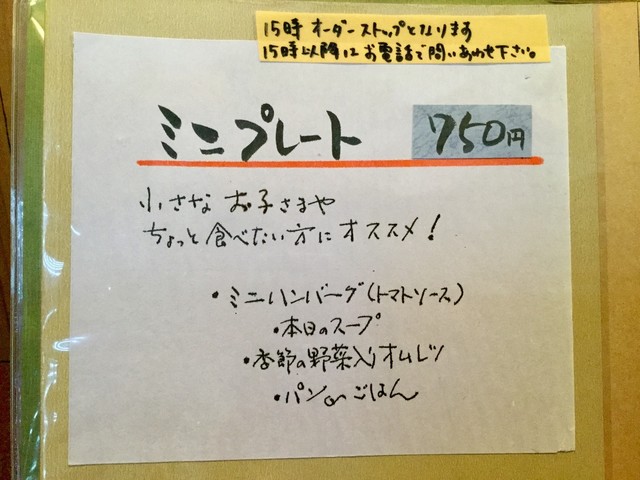 15時 オーダーストップとなります
15時以降は お電話で問いあわせ下さい。
ミニプレート 750円
小さな お子さまや
ちょっと食べたい方にオススメ!
・ミニハンバーグ(トマトソース)
・本日のスープ
・季節の野菜入りオムレツ
・パン or ごはん